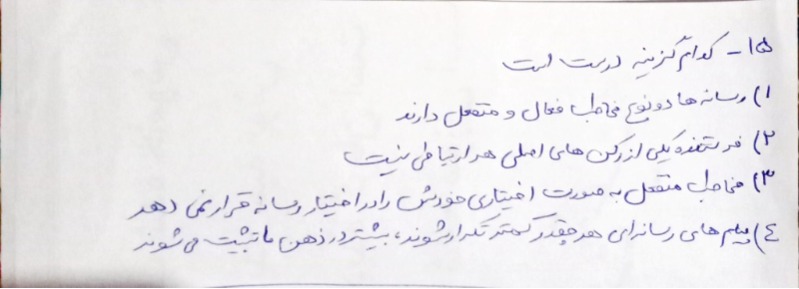 ۱۵- کدام گزینه درست است
۱) رسانه ها دو نوع مخاطب فعال و منفعل دارند
۲) فرستنده یکی از رکن های اصلی هر ارتباطی نیست
۳) مخاطب منفعل به صورت اختیاری خودش را در اختیار رسانه قرار نمی دهد
۴) پیام های رسانه ای هر چقدر کمتر تکرار شوند، بیشتر در ذهن ما تثبیت می شوند